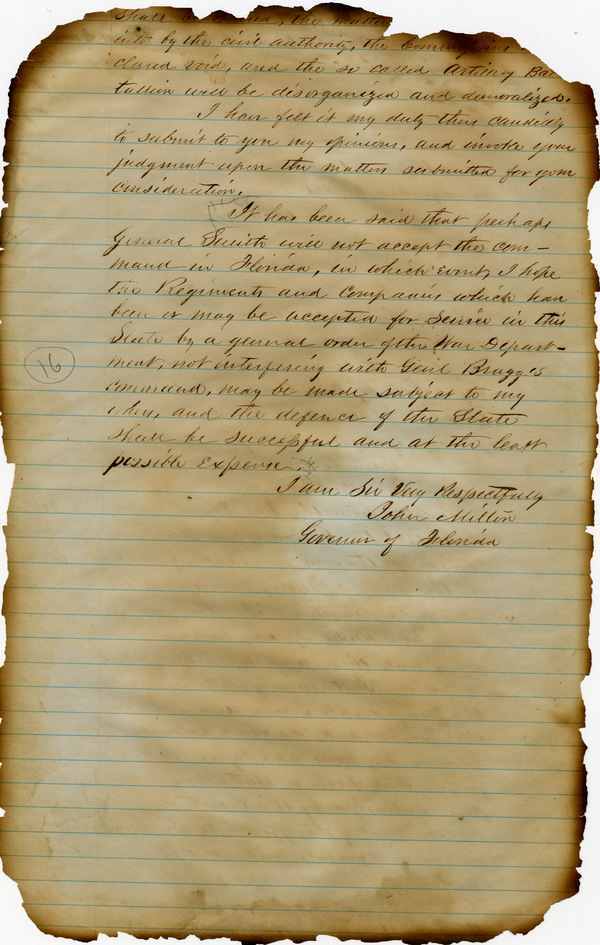 shall be        , the matter
into by the civil authority, the Commissions
clared void, and the so called Artillery Bat
tallion will be disorganized and demoralized.
I have felt it my duty thus candidly
to submit to you my opinions, and invoke your
judgment upon the matters submitted for your
consideration.
It has been said that perhaps
General Smith will not accept the com–
mand in Florida, in which event, I hope
the Regiments and Companies which have
been or may be accepted for Service in this
State by a general order of the War Depart–
ment, not interfering with Genl Bragg's
command, may be made subject to my
orders, and the defence of the State
shall be successful and at the least
possible expense.
I am Sir Very Respectfully
John Milton
Governor of Florida
16